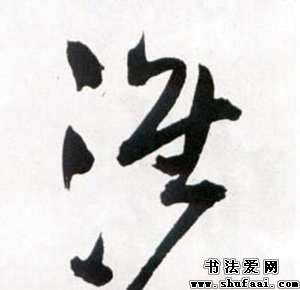 涉
书法爱网
www.shufaai.com